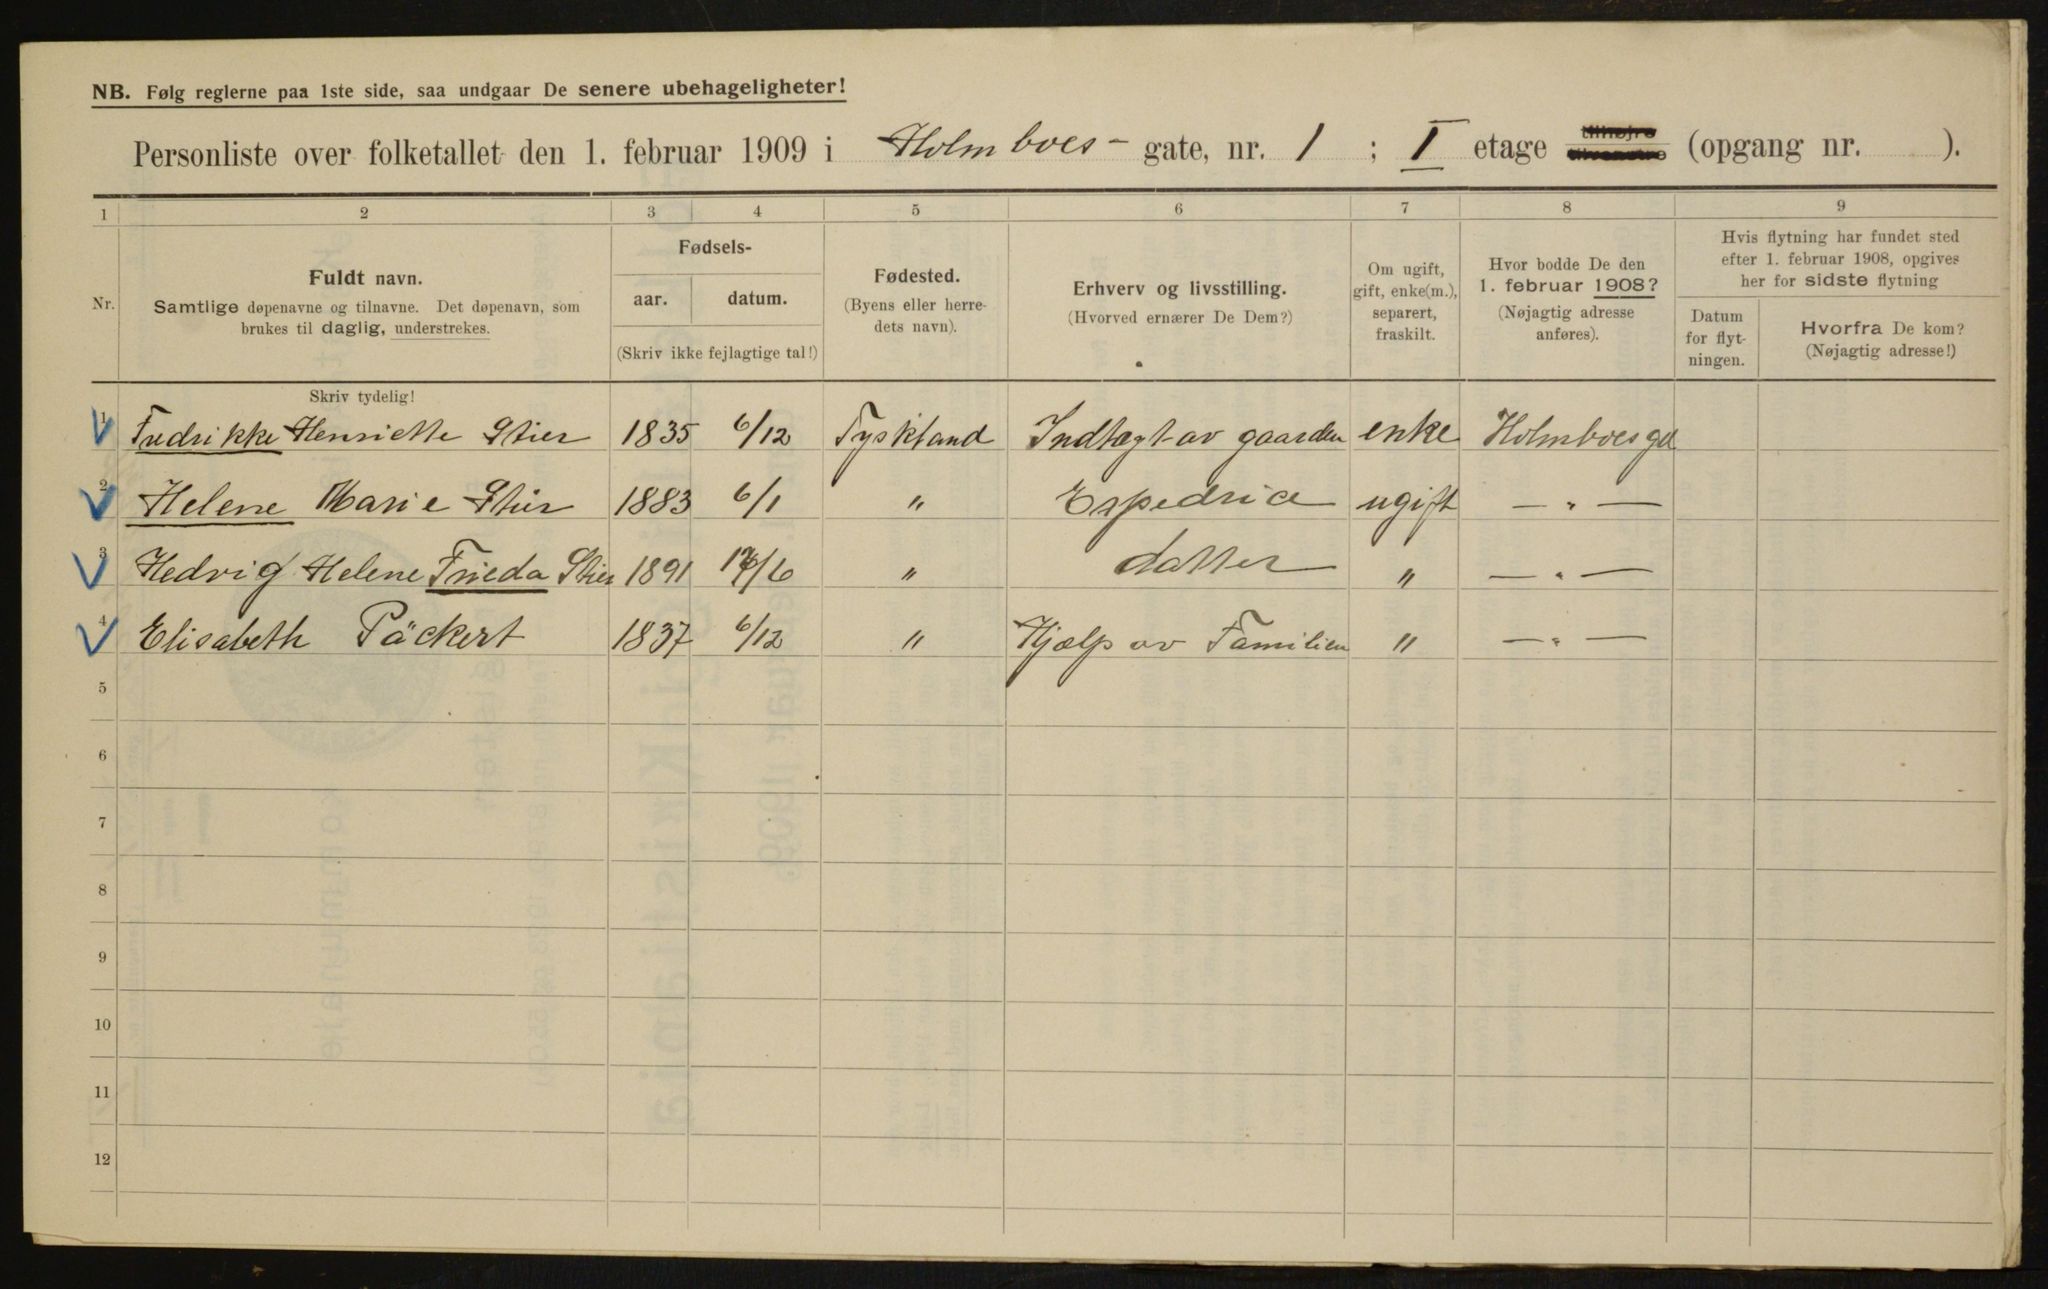 NB. Følg reglerne paa 1ste side, saa undgaar De senere ubehageligheter!
Personliste over folketallet den 1. februar 1909 i Holmboes- gate, nr. 1 ; I etage tilhøjre tilvenstre (opgang nr. ).
1 2 3 4 5 6 7 8 9
Nr.
Fuldt navn.
Samtlige døpenavne og tilnavne. Det døpenavn, som
brukes til daglig, understrekes.
Fødsels-
aar. datum.
(Skriv ikke fejlagtige tal!)
Fødested.
(Byens eller herre-
dets navn).
Erhverv og livsstilling.
(Hvorved ernærer De Dem?)
Om ugift,
gift, enke(m.),
separert,
fraskilt.
Hvor bodde De den
1. februar 1908?
(Nøjagtig adresse
anføres).
Hvis flytning har fundet sted
efter 1. februar 1908, opgives
her for sidste flytning
Datum
for flyt-
ningen.
Hvorfra De kom?
(Nøjagtig adresse!)
Skriv tydelig!
1 Fredrikke Henriette Stier 1835 6/12 Tyskland Indtægt av gaarden enke Holmboesgd
2 Helene Marie Stier 1883 6/1 " Expedrice ugift — " —
3 Hedvig Helene Frieda Stier 1891 /6 " datter " — " —
4 Elisabeth Päckert 1837 6/12 " Hjælp av Familien " — " —
5
6
7
8
9
10
11
12